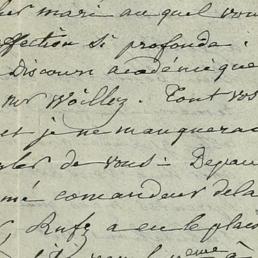 mari auquel vou
ffection si profonde.
Discours académique
sur Woillez. Tout vos
et je ne manquerai
rler de vous. Depui
mé comandeur de la
Rufz a eu le plai